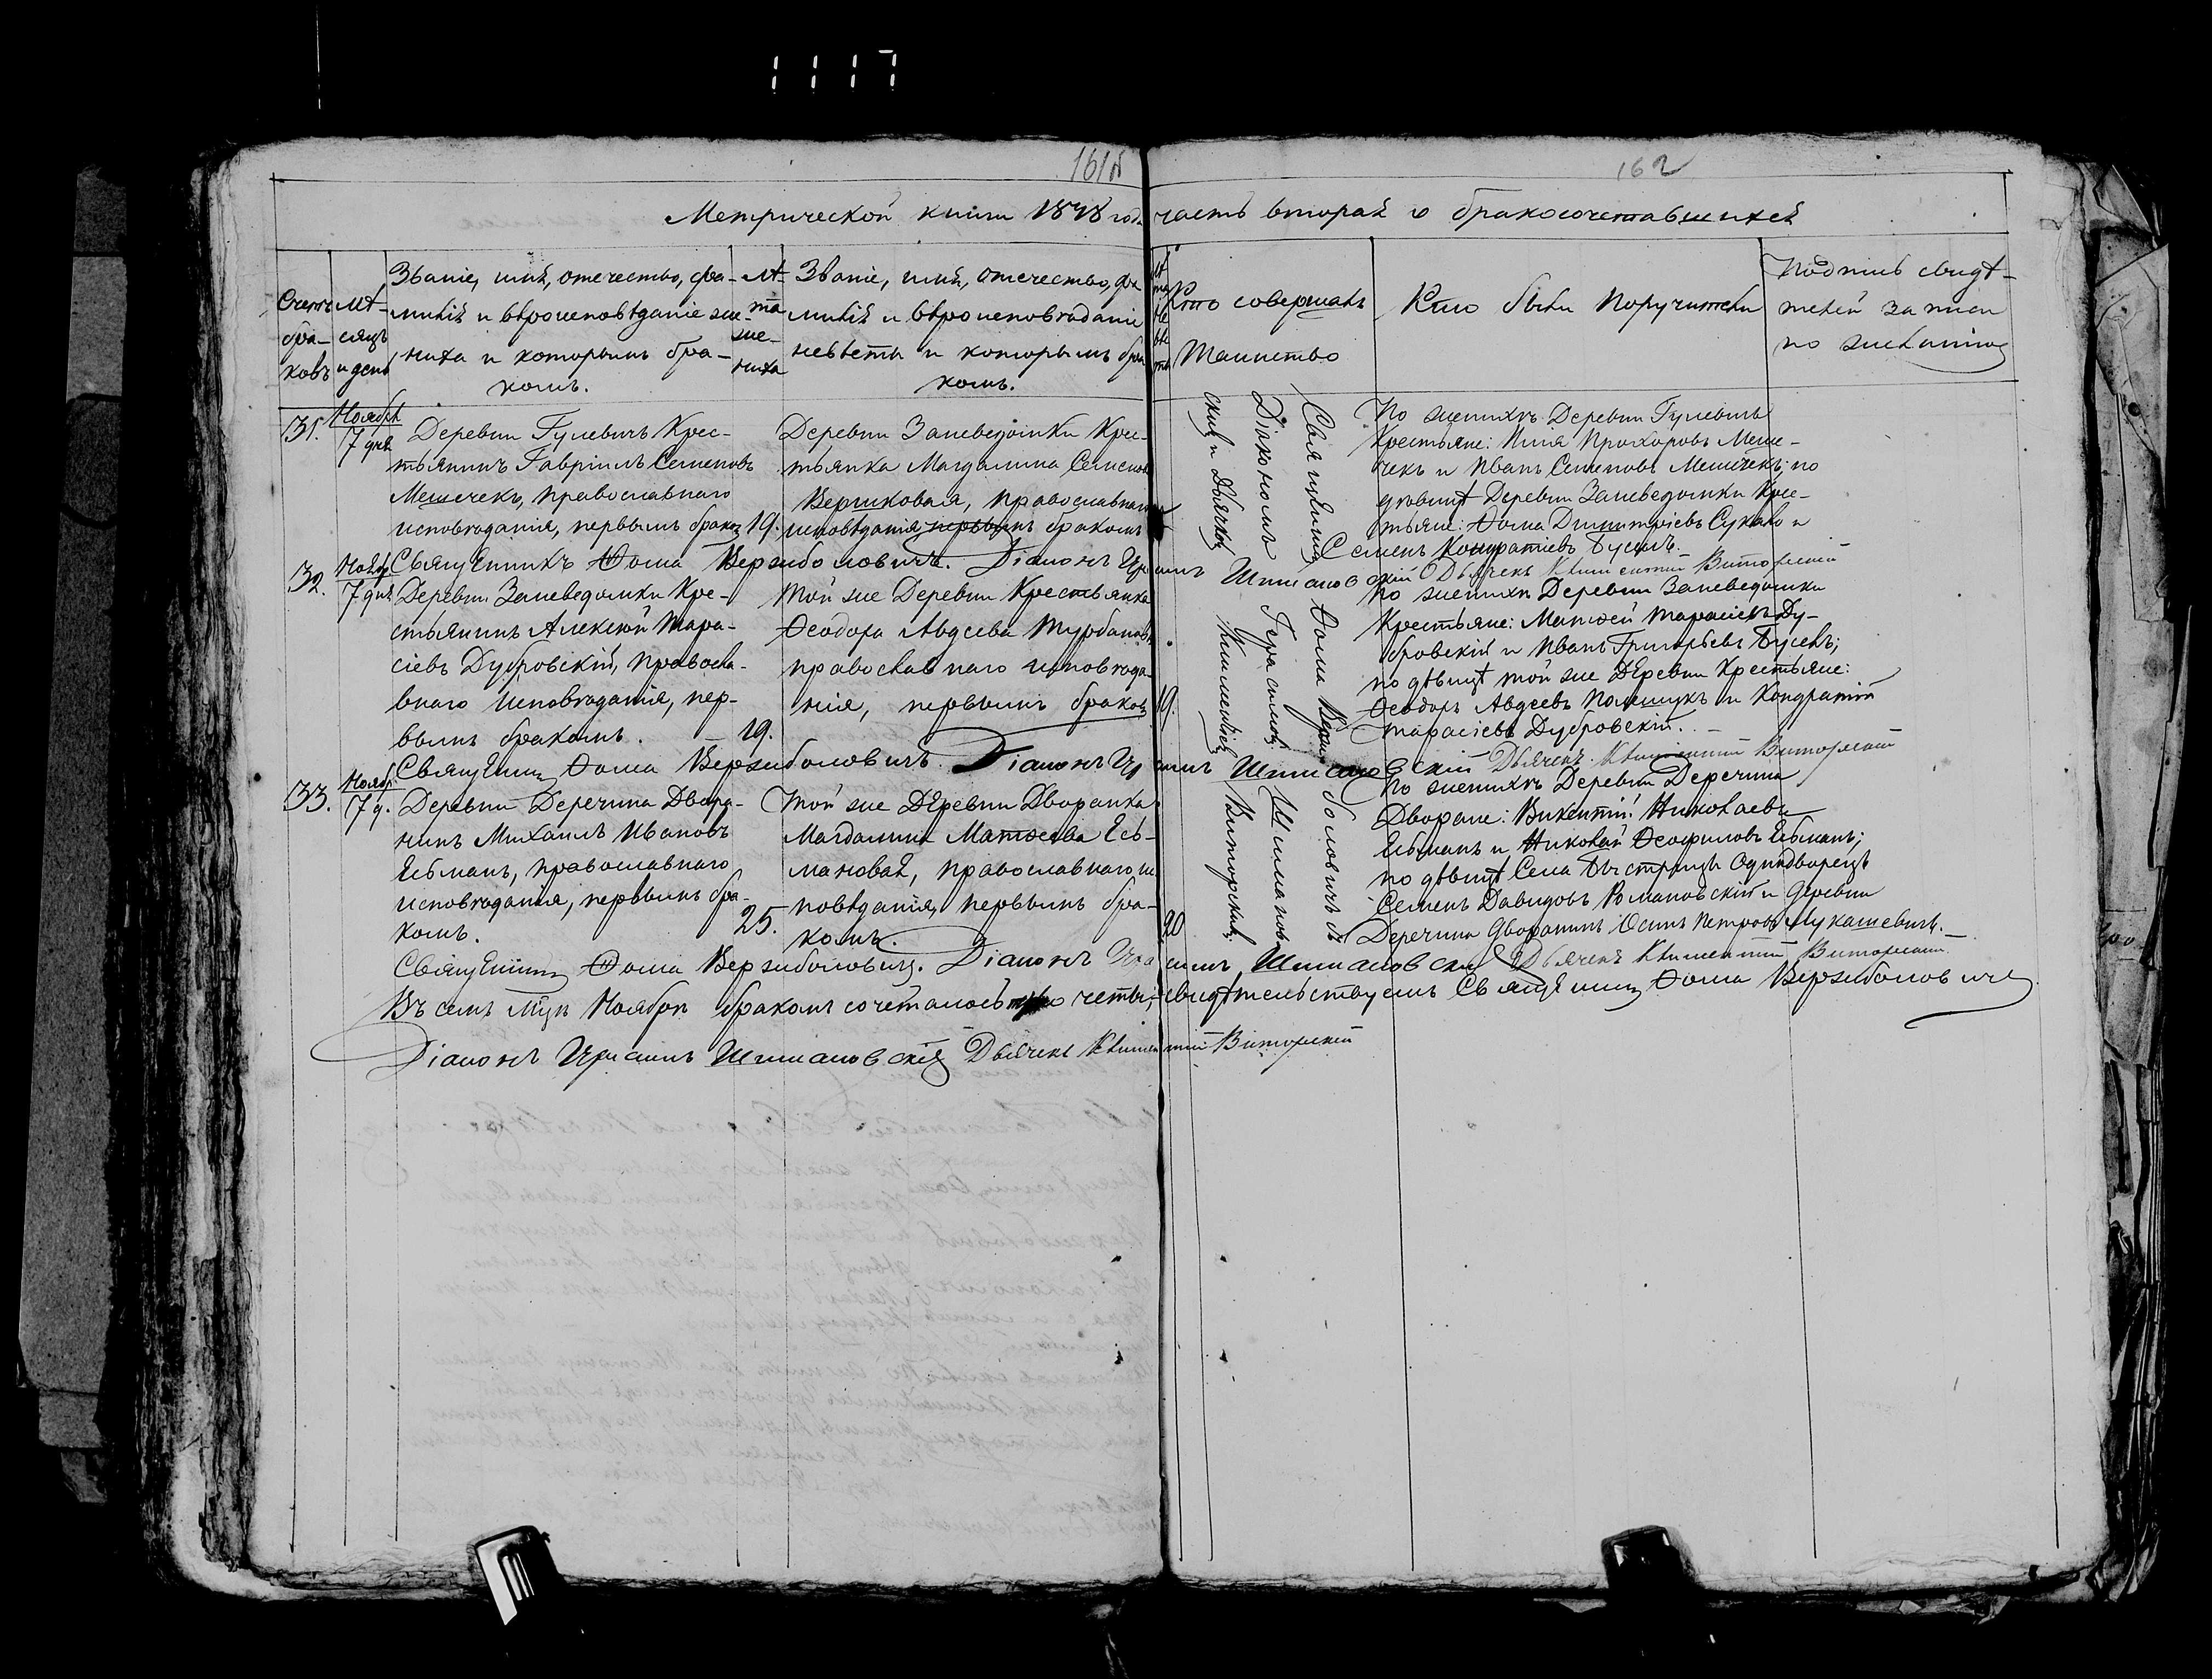 1117
161б
162
Метрической книги 1848 года часть вторая о бракосочетавшихся
Счетъ бра-ковъ
Мѣ-сяцъ и день
Званіе, имя, отечество, фа-
милія и вѣроисповѣданіе же-
ниха и которымъ бра-
комъ.
Лѣ-
та
же-
ниха
Званіе, имя, отечество, фа
милія и вѣроисповѣданіе
невѣсты и которымъ бра
комъ.
Лѣ
та
не
вѣ
сты
Кто совершалъ
Таинство
Кто были Поручители
Подпись свидѣ-
телей записи
по желанію
31.
Ноября
7 дня
Деревни Гулевичъ Крес-
тьянинъ Гавріилъ Семеновъ
Мешечекъ, православнаго
исповѣданія, первымъ бракомъ
19.
Деревни Заневедомки Крес-
тьянка Магдалина Семенова
Вершковая, православнаго
исповѣданія первымъ бракомъ
Священникъ Фома Вержиболовичъ съ
Діакономъ Герасимомъ Шиманов-
скимъ и Дьячкомъ Климентіемъ Виторскимъ.
По женихѣ Деревни Гулевичъ
Крестьяне: Илія Прохоровъ Меше-
чекъ и Иванъ Семеновъ Мешечекъ; по
дѣвицѣ Деревни Заневедомки Крес-
тьяне: Фома Димитріевъ Сукало и
Семенъ Кондратіевъ Бусель.
Священникъ Фома Вержиболовичъ. Діаконъ Ирасимъ Шимановскій Дьячекъ Климентій Виторский
32.
Ноября
7 дня
Деревни Заневедомки Кре-
стьянинъ Алексѣй Тара-
сіевъ Дубровскій, правосла-
внаго исповѣданія, пер-
вымъ бракомъ.
19.
Той же Деревни Крестьянка
Феодора Авдеева Турбанова
православнаго исповѣда-
нія, первымъ бракомъ
19.
По женихѣ Деревни Заневедомки
Крестьяне: Матѳей Тарасіевъ Ду-
бровскій и Иванъ Григорьевъ Бусель;
по дѣвицѣ той же Деревни Крестьяне:
Феодоръ Авдеевъ Полищукъ и Кондратій
Тарасіевъ Дубровскій.
Священникъ Фома Вержиболовичъ. Діаконъ Ирасимъ Шимановскій Дьячекъ Климентий Виторский
33.
Ноябр.
7 д.
Деревни Деречина Дворя-
нинъ Михаилъ Ивановъ
Ельманъ, православнаго
исповѣданія, первымъ бра-
комъ.
25.
Той же Деревни Дворянка
Магдалина Матѳеева Ель-
мановая, православнаго ис
повѣданія, первымъ бра-
комъ.
20
По женихѣ Деревни Деречина
Дворяне: Викентій Николаевъ
Ельманъ и Николай Феофиловъ Ельманъ;
по дѣвицѣ Села Быстрицы Однодворецъ
Семенъ Давидовъ Романовскій и Деревни
Деречина дворянинъ Осипъ Петровъ Лукашевичъ.
Священникъ Фома Вержиболовичъ. Діаконъ Ирасимъ Шимановскій Дьячекъ Климентий Виторский
Въ семъ Мцѣ Ноябрѣ бракомъ сочеталось четы, свидѣтельствуемъ Священникъ Фома Вержиболовичъ
Діаконъ Ирасимъ Шимановскій Дьячекъ Климентій Виторский